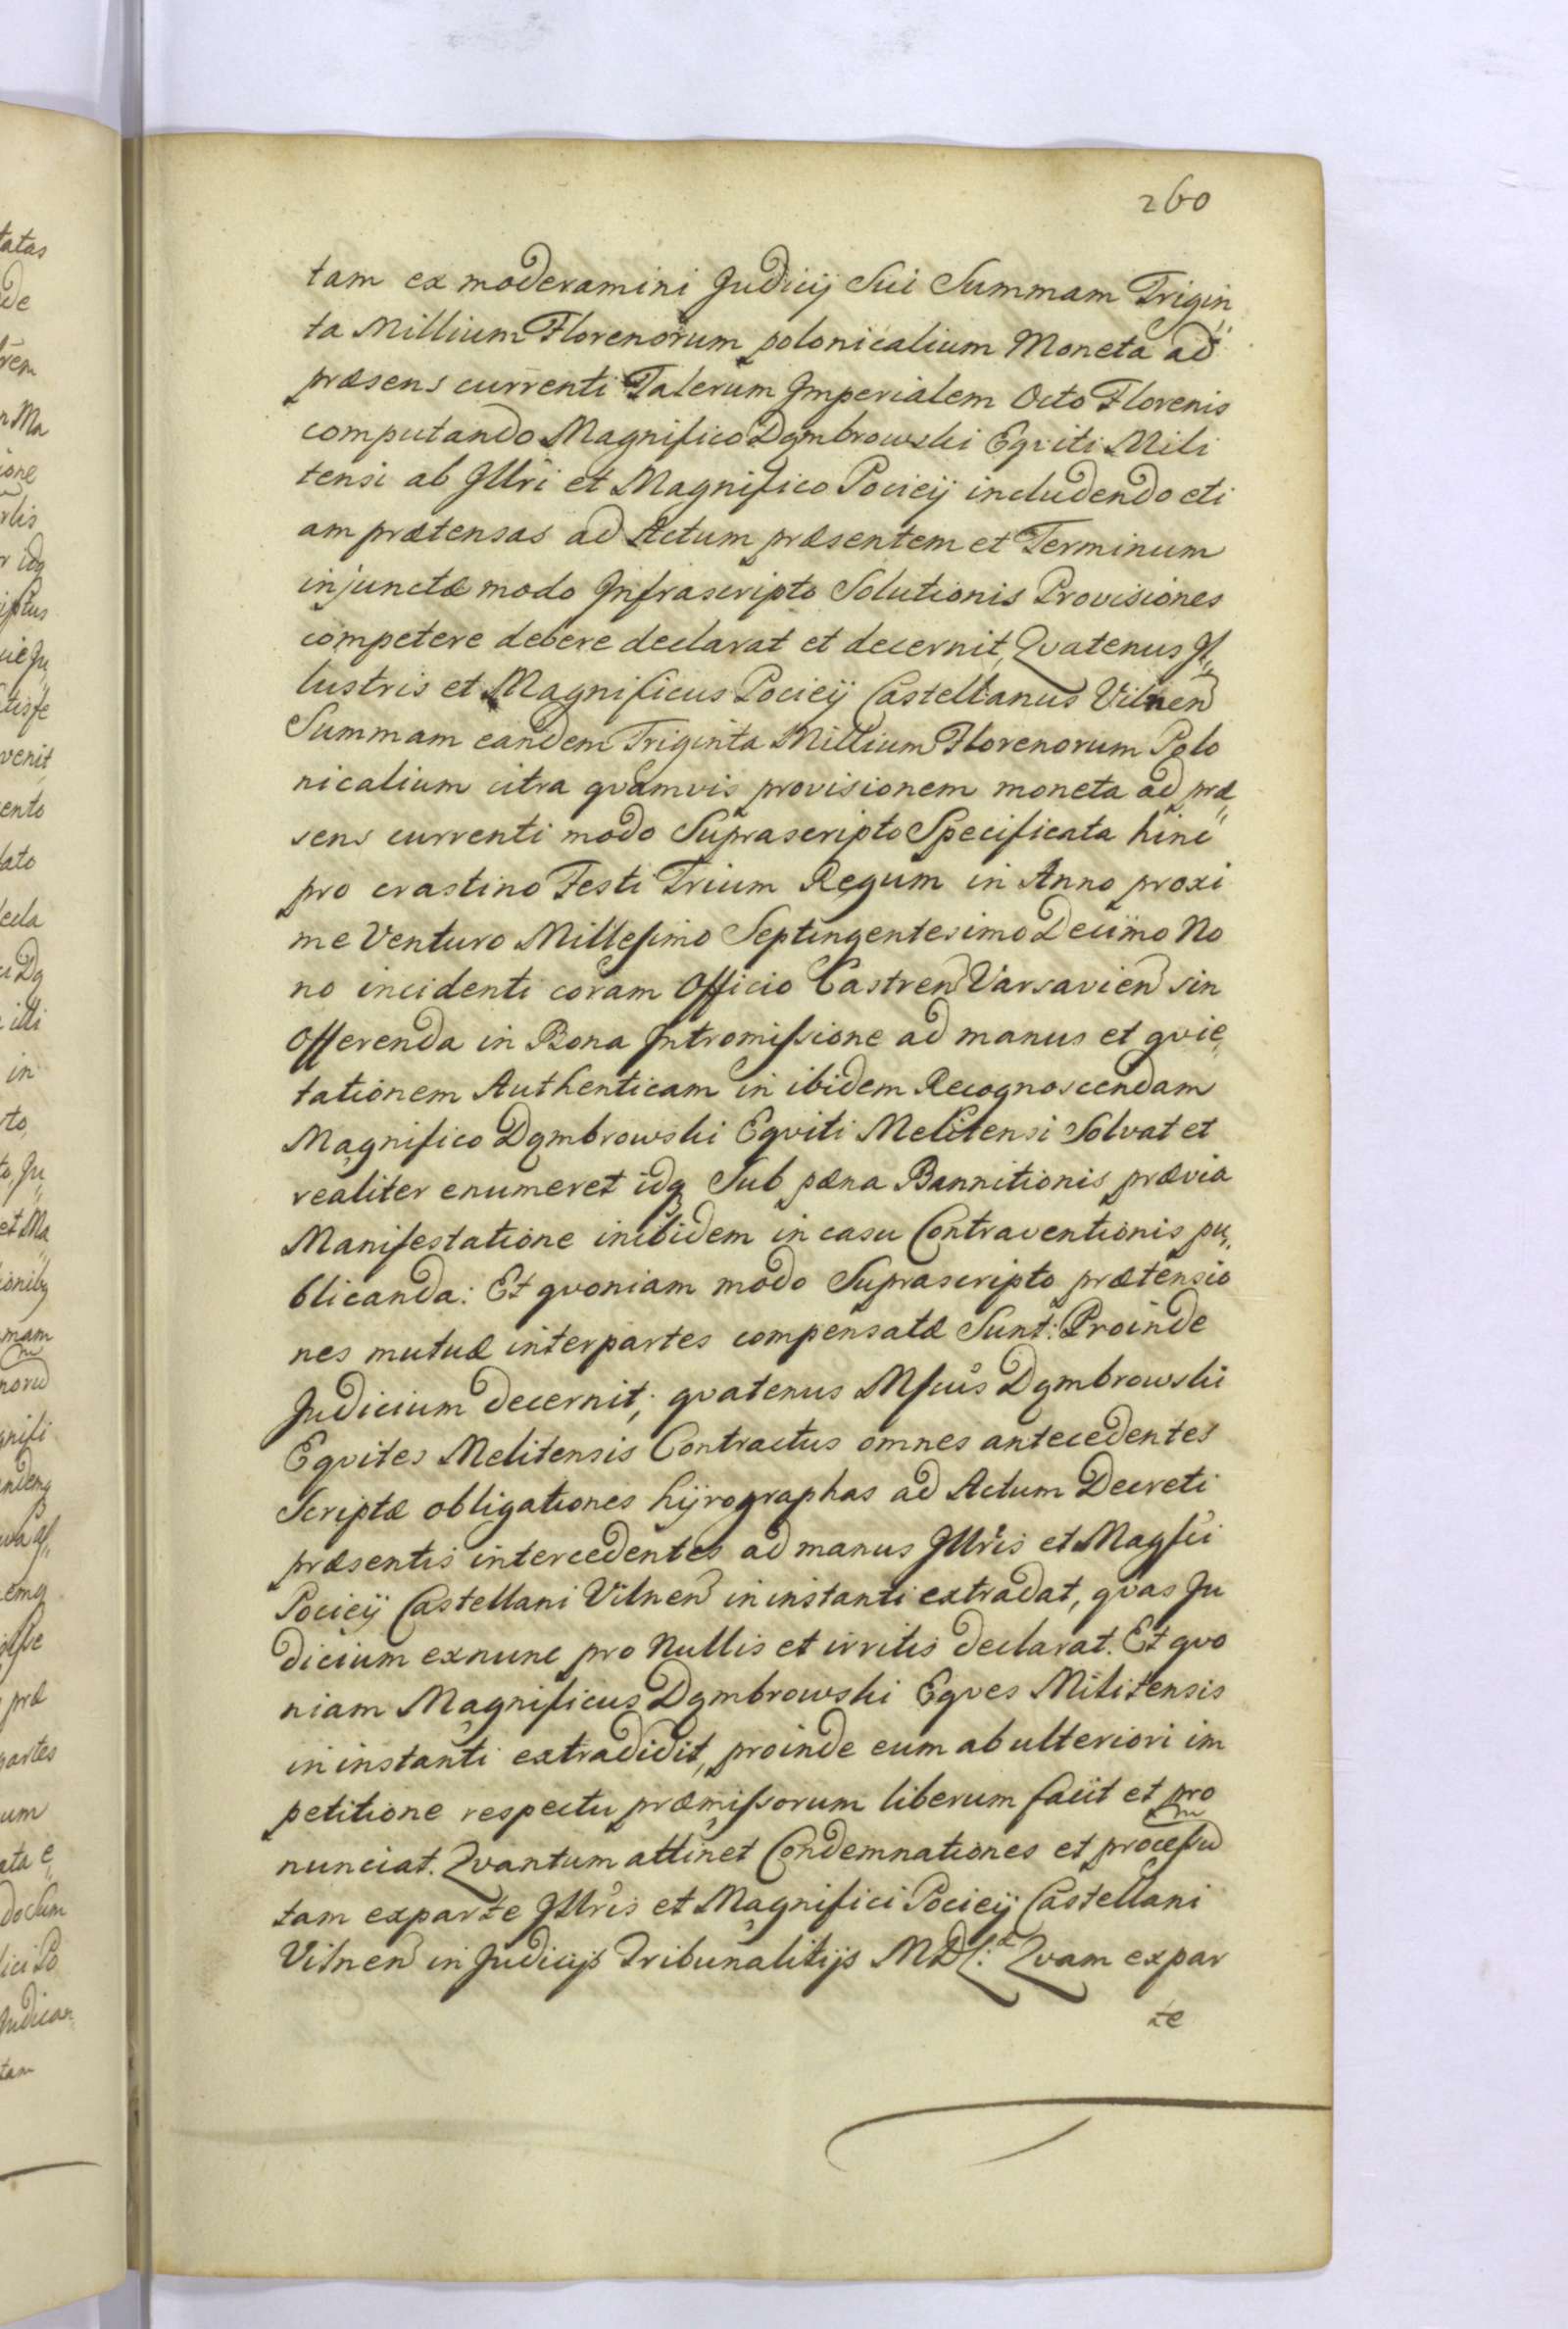 260
tam ex moderamini Judicij Sui Summam Trigin„
ta Millium Florenorum polonicalium Moneta ad
præsens currenti Talerum Imperialem Octo Florenis
computando Magnifico Dąmbrowski Eqviti Mili
tensi ab Illri et Magnifico Pocieij includendo eti
am prætensas ad Actum præsentem et Terminum
injunctæ modo Infrascripto Solutionis Provisiones
competere debere declarat et decernit, Qvatenus Il„
lustris et Magnificus Pocieij Castellanus Vilnen
Summam eandem Triginta Millium Florenorum Polo
nicalium citra qvamvis provisionem moneta ad præ„
sens currenti modo Suprascripto Specificata hinc
pro crastino Festi Trium Regum in Anno proxi
me Venturo Millesimo Septingentesimo Decimo No
no incidenti coram Officio Castren Varsavien sin
Offerenda in Bona Intromissione ad manus et qvie„
tationem Authenticam in ibidem Recognoscendam
Magnifico Dąmbrowski Eqviti Melitensi Solvat et
realiter enumeret idq Sub pæna Bannitionis prævia
Manifestatione inibidem in casu Contraventionis pu„
blicanda: Et qvoniam modo Suprascripto prætensio
nes mutuæ interpartes compensatæ Sunt: Proinde
Judicium decernit; qvatenus Mfcus Dąmbrowski
Eqvites Melitensis Contractus omnes antecedentes
Scriptæ obligationes hijrographas ad Actum Decreti
præsentis intercedentes ad manus Illris et Magfci
Pocieij Castellani Vilnen in instanti extradat, qvas Ju
dicium exnunc pro Nullis et irritis declarat. Et qvo
niam Magnificus Dąmbrowski Eqves Militensis
in instanti extradidit, proinde eum ab ulteriori im
petitione respectu præmissorum liberum facit et pro
nunciat. Qvantum attinet Condemnationes et processu
tam exparte Illris et Magnifici Pocieij Castellani
Vilnen in Judicijs Tribunalitijs MDL: Qvam expar
te